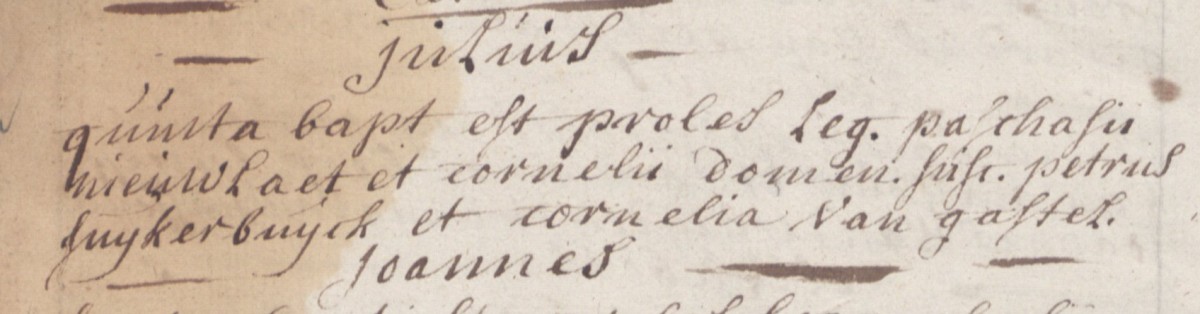 julius
quinta bapt est proles Leg. paschasii
nieuwLaet et cornelii domen. susc. petrus
suykerbuyck et cornelia van gastel.
joannes